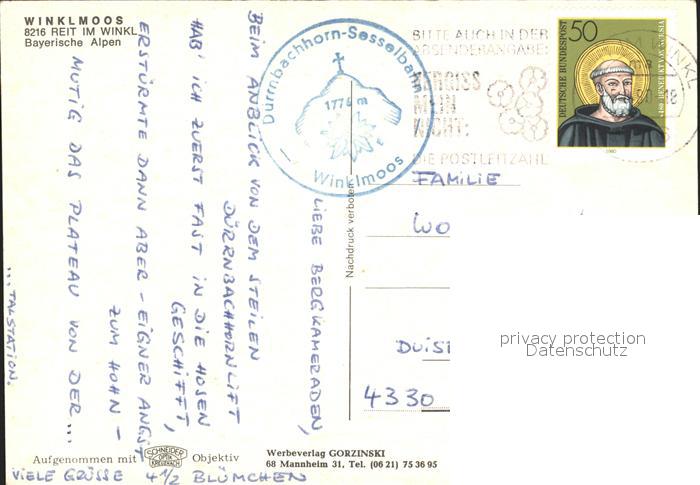 WINKLMOOS
8216 REIT IM WINKL
Bayerische Alpen
Dürrnbachhorn-Sesselbahn
1776 m
Winklmoos
BITTE AUCH IN DER
ABSENDERANGABE:
VERGISS
MEIN
NICHT:
DIE POSTLEITZAHL
50
DEUTSCHE BUNDESPOST
1980
LIEBE BERGKAMERADEN,
BEIM ANBLICK VON DEM STEILEN
DÜRRNBACHHORNLIFT
HAB' ICH ZUERST FAST IN DIE HOSEN
GESCHIFFT,
ERSTÜRMTE DANN ABER - EIGNER ANGST
ZUM HOHN -
MUTIG DAS PLATEAU VON DER...
...TALSTATION.
VIELE GRÜSSE 4 1/2 BLÜMCHEN
Nachdruck verboten
FAMILIE
WO
DUIS
4330
privacy protection
Datenschutz
Aufgenommen mit SCHNEIDER OPTIK KREUZNACH Objektiv
Werbeverlag GORZINSKI
68 Mannheim 31, Tel. (06 21) 75 36 95